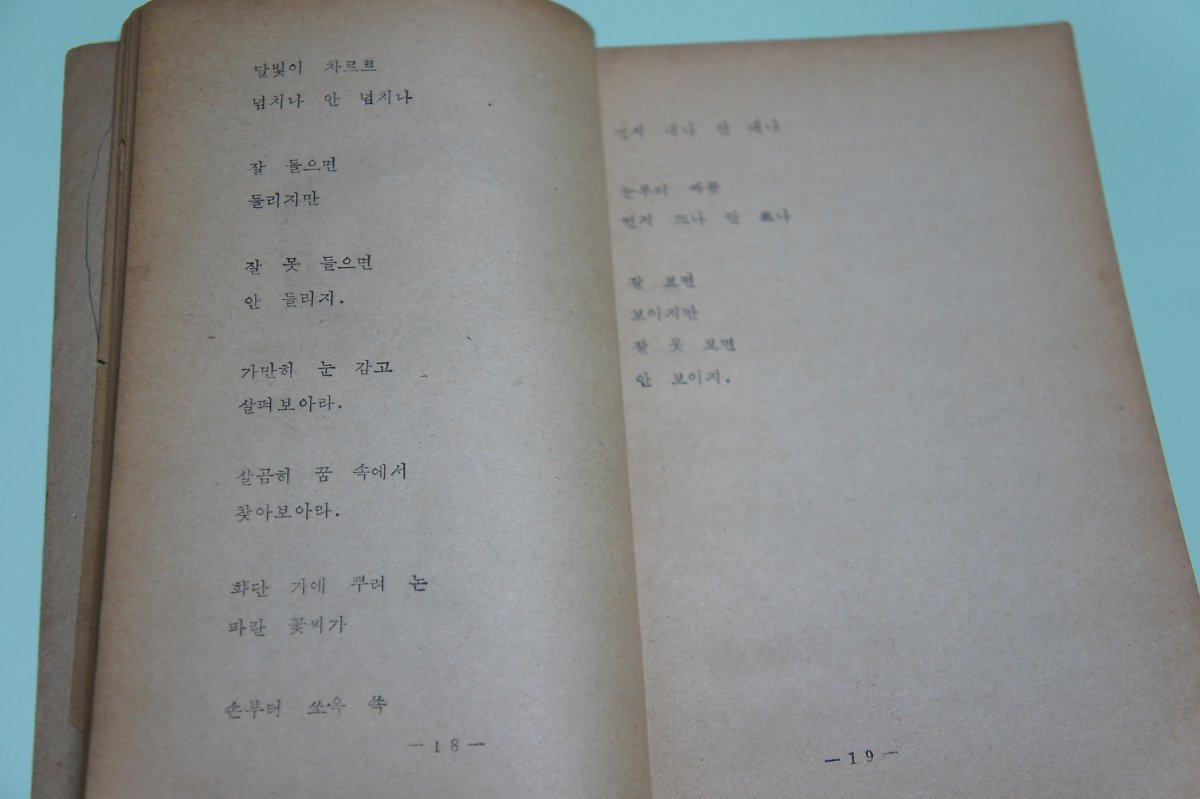 달빛이 차르르
넘치나 안 넘치나
잘 들으면
들리지만
잘 못 들으면
안 들리지.
가만히 눈 감고
살펴보아라.
살곰히 꿈 속에서
찾아보아라.
화단 가에 뿌려 논
파란 꽃씨가
손부터 쏘옥 쏙
—18—
먼저 내나 안 내나
눈부터 빠끔
먼저 뜨나 안 뜨나
잘 보면
보이지만
잘 못 보면
안 보이지.
—19—